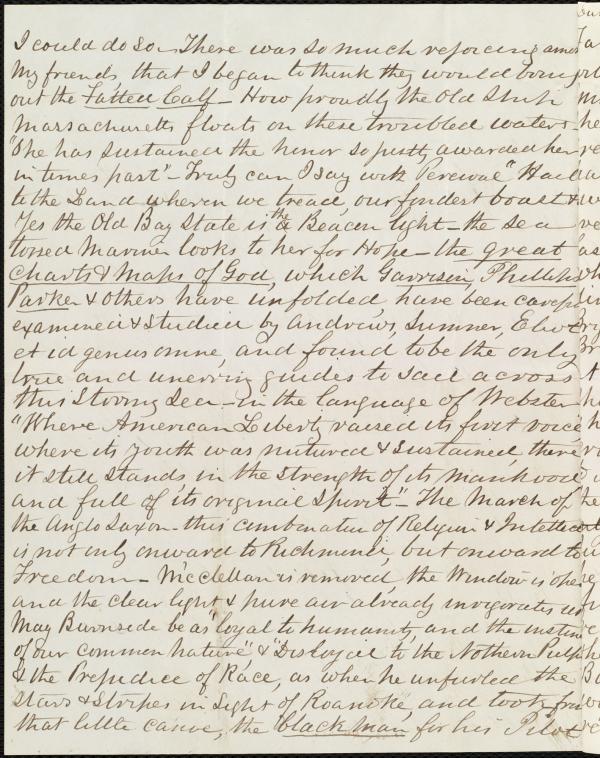 I could do so - There was so much rejoicing amo
my friends that I began to think they would bring
out the Fatted Calf - How proudly the Old Ship
Massachusetts floats on these troubled waters
"She has sustained the honor so justly awarded her
in times past" - Truly can I say with Percival "Hail
to the Land whereon we tread, our fondest boast &
Yes the Old Bay State is the Beacon light - the sea
tossed Mariner looks to her for Hope - the great
Charts & Maps of God, which Garrison, Phillips
Parker & others have unfolded, have been
examined & studied by Andrew, Sumner, Eliot
et id genus omne, and found to be the only
true and unerring guides to sail across
this Stormy Sea - in the language of Webster
"Where American Liberty raised its first voice
where its youth was nutured & sustained, there
it still stands in the strength of its manhood
and full of its original Spirit" - The March of
the Anglo Saxon - this combination of Religion &
is not only onward to Richmond, but onward to
Freedom - McClellan is removed, the Window is ope
and the clear light & pure air already invigorates us
May Burnside be as "loyal to humanity and the
of our common nature" & "Disloyal to the Nothern Pulp
& the Prejudice of Race, as when he unfurled the
Stars & Stripes in sight of Roanoke, and took
that little canoe, the black man for his Pilot